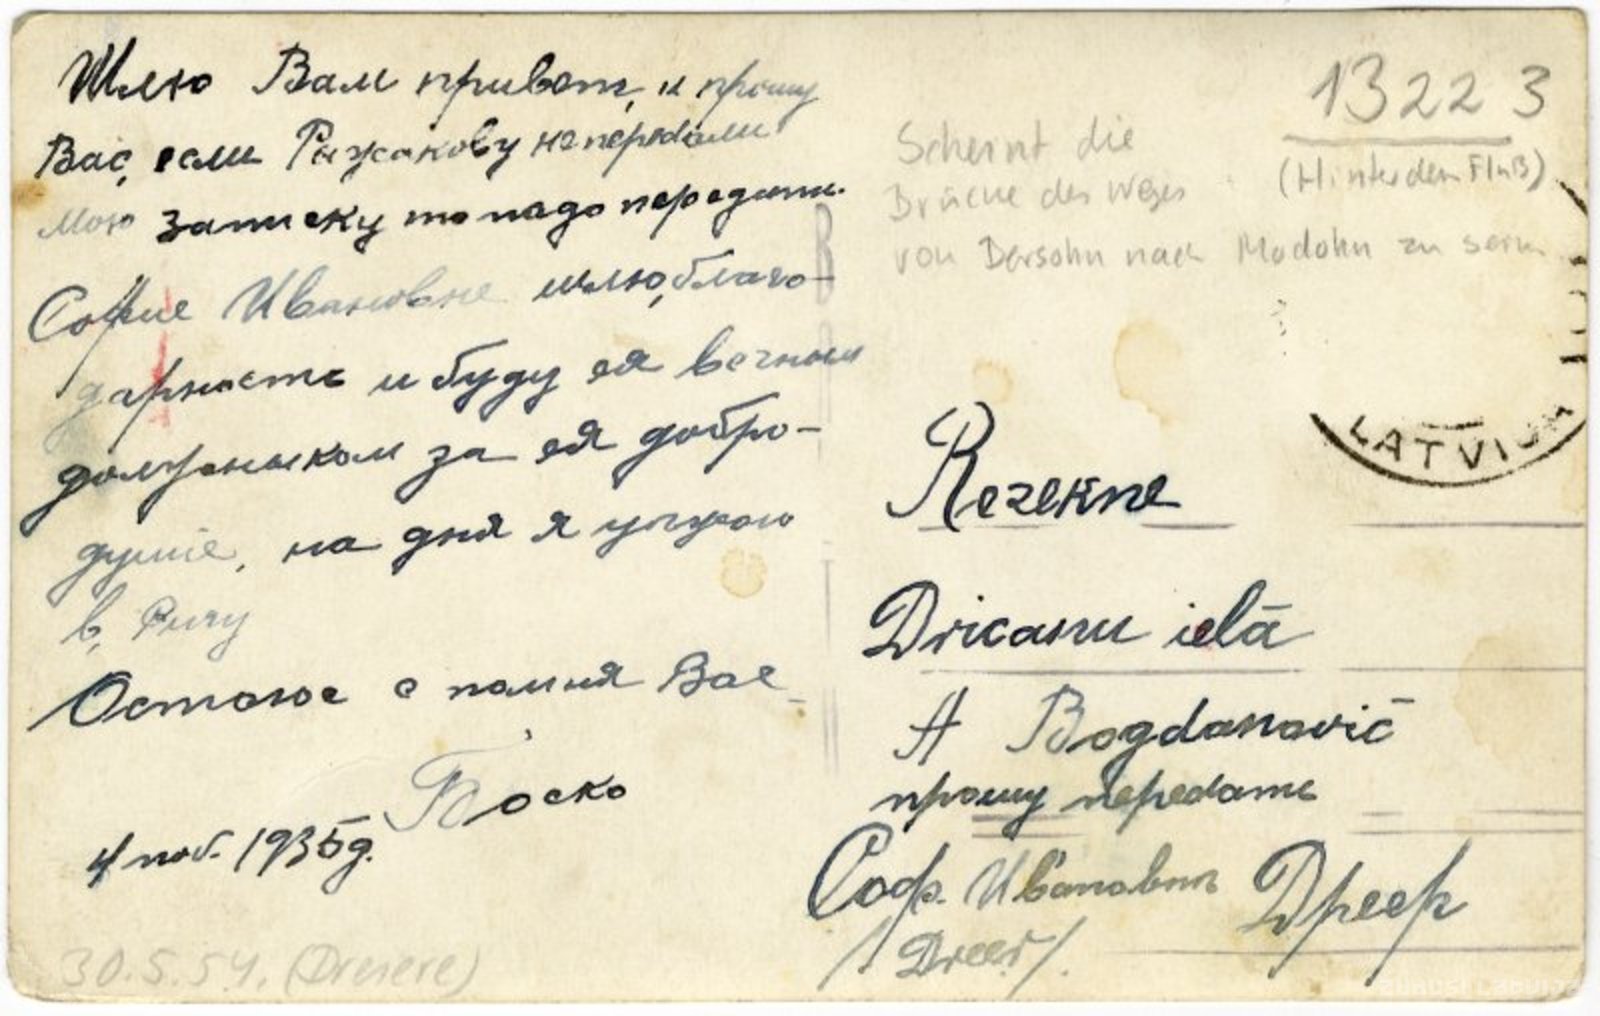 Шлю Вам привет, и прошу
Вас, если Рыжакову не передали
мою записку то надо передать.
Софие Ивановне шлю, благо-
дарность и буду ея вечным
должником за ея добро-
душие, на днях я уезжаю
в Ригу
Остаюсь с помня Вас
Боско
4 ноб. 1935 г.
30.5.54. (Dreiere)
1322 3
Scheint die (Hinter dem Fluß)
Brücke des Weges
von Bersohn nach Modohn zu sein
LATVIJA
Rezekne
Dricanu ielā
A Bogdanovič
прошу передать
Соф. Ивановне Дреер
/Dreer/.